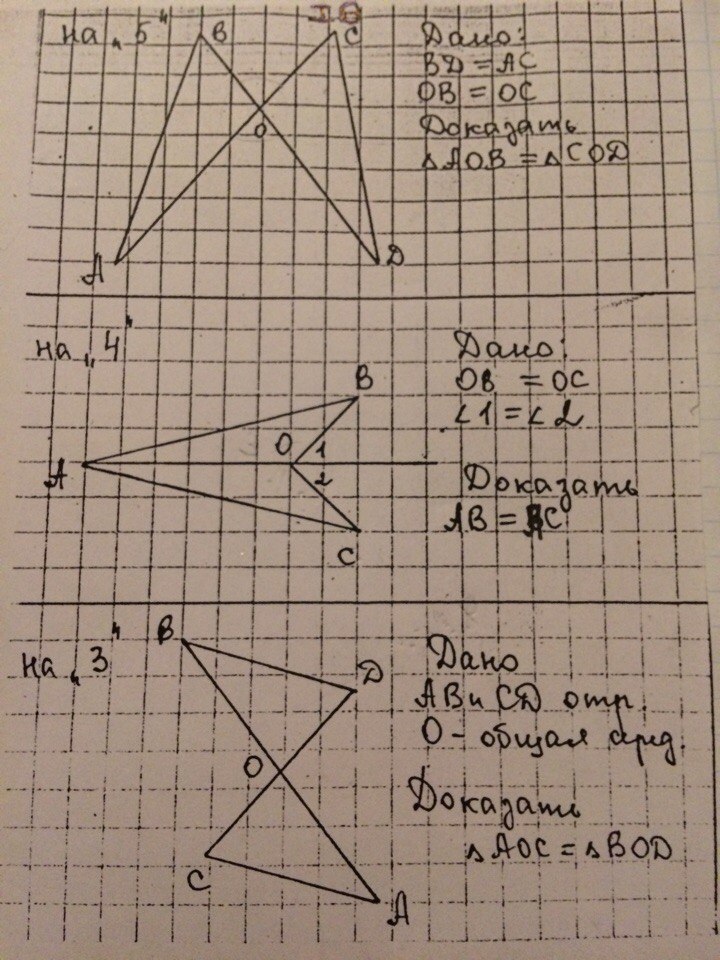 на „5"
B
C
O
A
D
Дано:
BD = AC
OB = OC
Доказать
△AOB = △COD
на „4"
B
O
1
A
2
C
Дано:
OB = OC
∠1 = ∠2
Доказать
AB = AC
на „3"
B
D
O
C
A
Дано
AB и CD отр.
O - общая сред.
Доказать
△AOC = △BOD